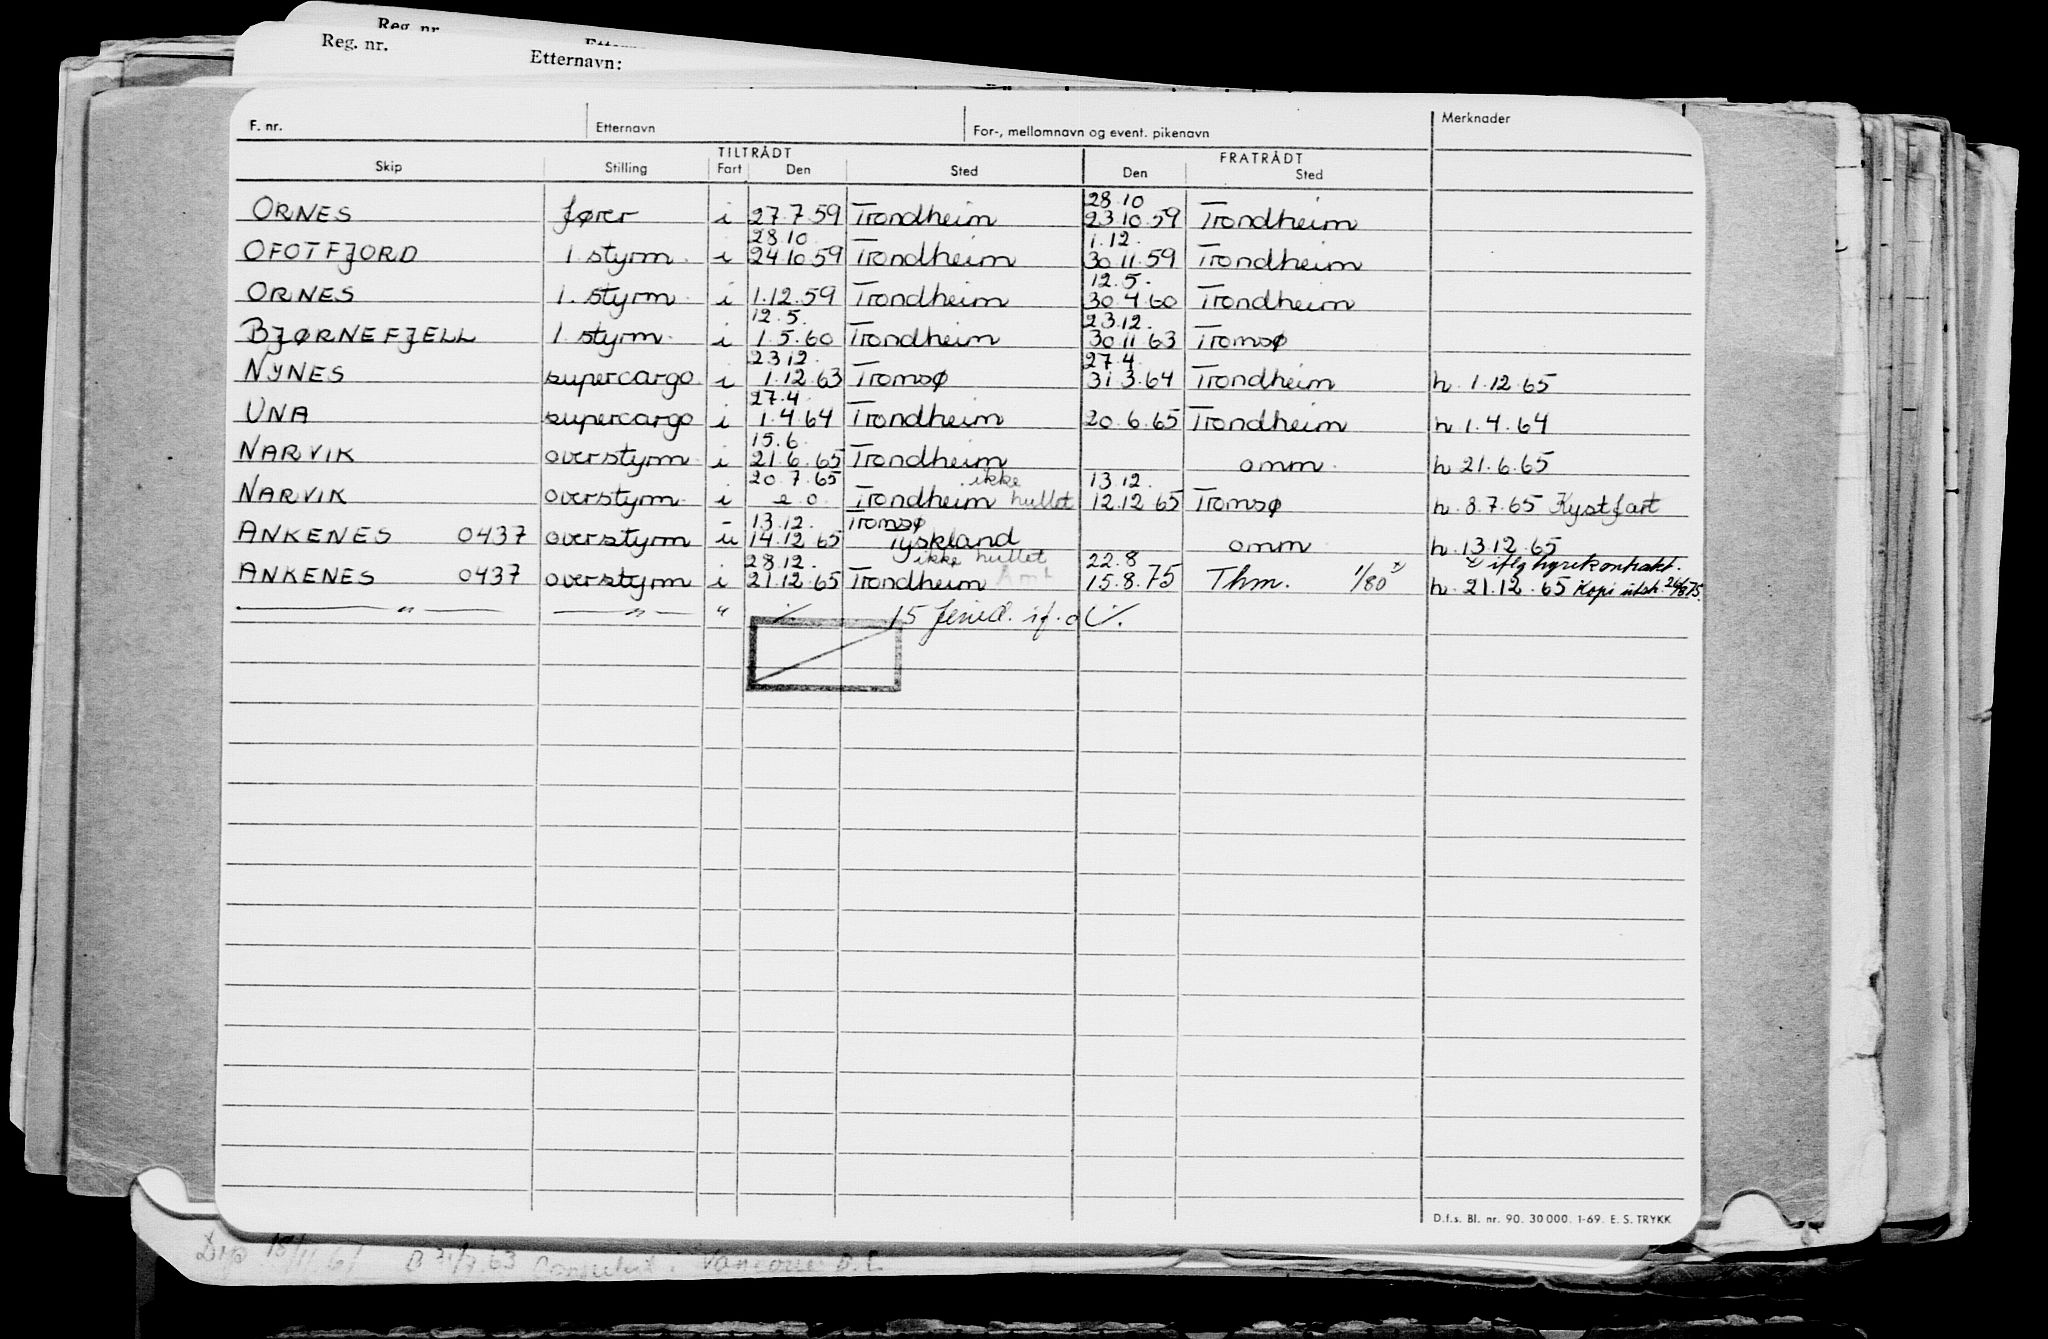 Reg. nr.
Reg. nr. Etternavn:
F. nr. Etternavn For-, mellomnavn og event. pikenavn Merknader
TILTRÅDT FRATRÅDT
Skip Stilling Fart Den Sted Den Sted
28.10
ORNES fører i 27.7.59 Trondheim 23.10.59 Trondheim
28.10. 1.12.
OFOTFJORD 1. styrm. i 24.10.59 Trondheim 30.11.59 Trondheim
12.5.
ORNES 1. styrm. i 1.12.59 Trondheim 30.4.60 Trondheim
12.5. 23.12.
BJØRNEFJELL 1. styrm. i 1.5.60 Trondheim 30.11.63 Tromsø
23.12. 27.4.
NYNES supercargo i 1.12.63 Tromsø 31.3.64 Trondheim h. 1.12.65
27.4.
UNA supercargo i 1.4.64 Trondheim 20.6.65 Trondheim h 1.4.64
15.6.
NARVIK overstyrm. i 21.6.65 Trondheim omm. h 21.6.65
20.7.65 ikke 13.12.
NARVIK overstyrm. i e o. Trondheim hullet 12.12.65 Tromsø h. 8.7.65 Kystfart
13.12. Tromsø
ANKENES 0437 overstyrm u 14.12.65 Tyskland omm h. 13.12.65
28.12. ikke hullet 22.8 x iflg hyrekontrakt.
ANKENES 0437 overstyrm i 21.12.65 Trondheim 15.8.75 Thm. 1/80 x h. 21.12.65 Kopi utsk. 26/8 75.
— " — — " — " ·/. 15 fmd. if. o ·/.
D.f.s. Bl. nr. 90. 30 000. 1-69. E. S. TRYKK